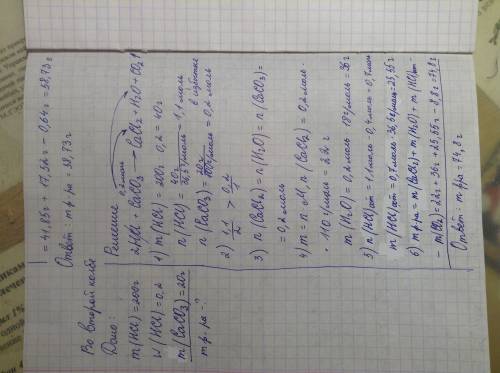 = 41,85г + 17,52г − 0,64г = 58,73г
Ответ: m р-ра = 58,73г
Во второй колбе
Дано:
m(HCl) = 200г
W(HCl) = 0,2
m(CaCO3) = 20г
m р-ра - ?
Решение
0,2 моль
2HCl + CaCO3 → CaCl2 + H2O + CO2↑
1) m(HCl) = 200г · 0,2 = 40г
n(HCl) = 40г / 36,5г/моль = 1,1 моль
в избытке
n(CaCO3) = 20г / 100г/моль = 0,2 моль
2) 1,1/2 > 0,2/1
3) n(CaCl2) = n(H2O) = n(CaCO3) =
= 0,2 моль
4) m = n · M, n(CaCl2) = 0,2 моль ·
· 110г/моль = 22г
m(H2O) = 0,2 моль · 18г/моль = 36г
5) n(HCl)ост = 1,1 моль − 0,4 моль = 0,7 моль
m(HCl)ост = 0,7 моль · 36,5г/моль = 25,55г
6) m р-ра = m(CaCl2) + m(H2O) + m(HCl)ост −
− m(CO2) = 22г + 36г + 25,55г − 8,8г = 74,8г
Ответ: m р-ра = 74,8г